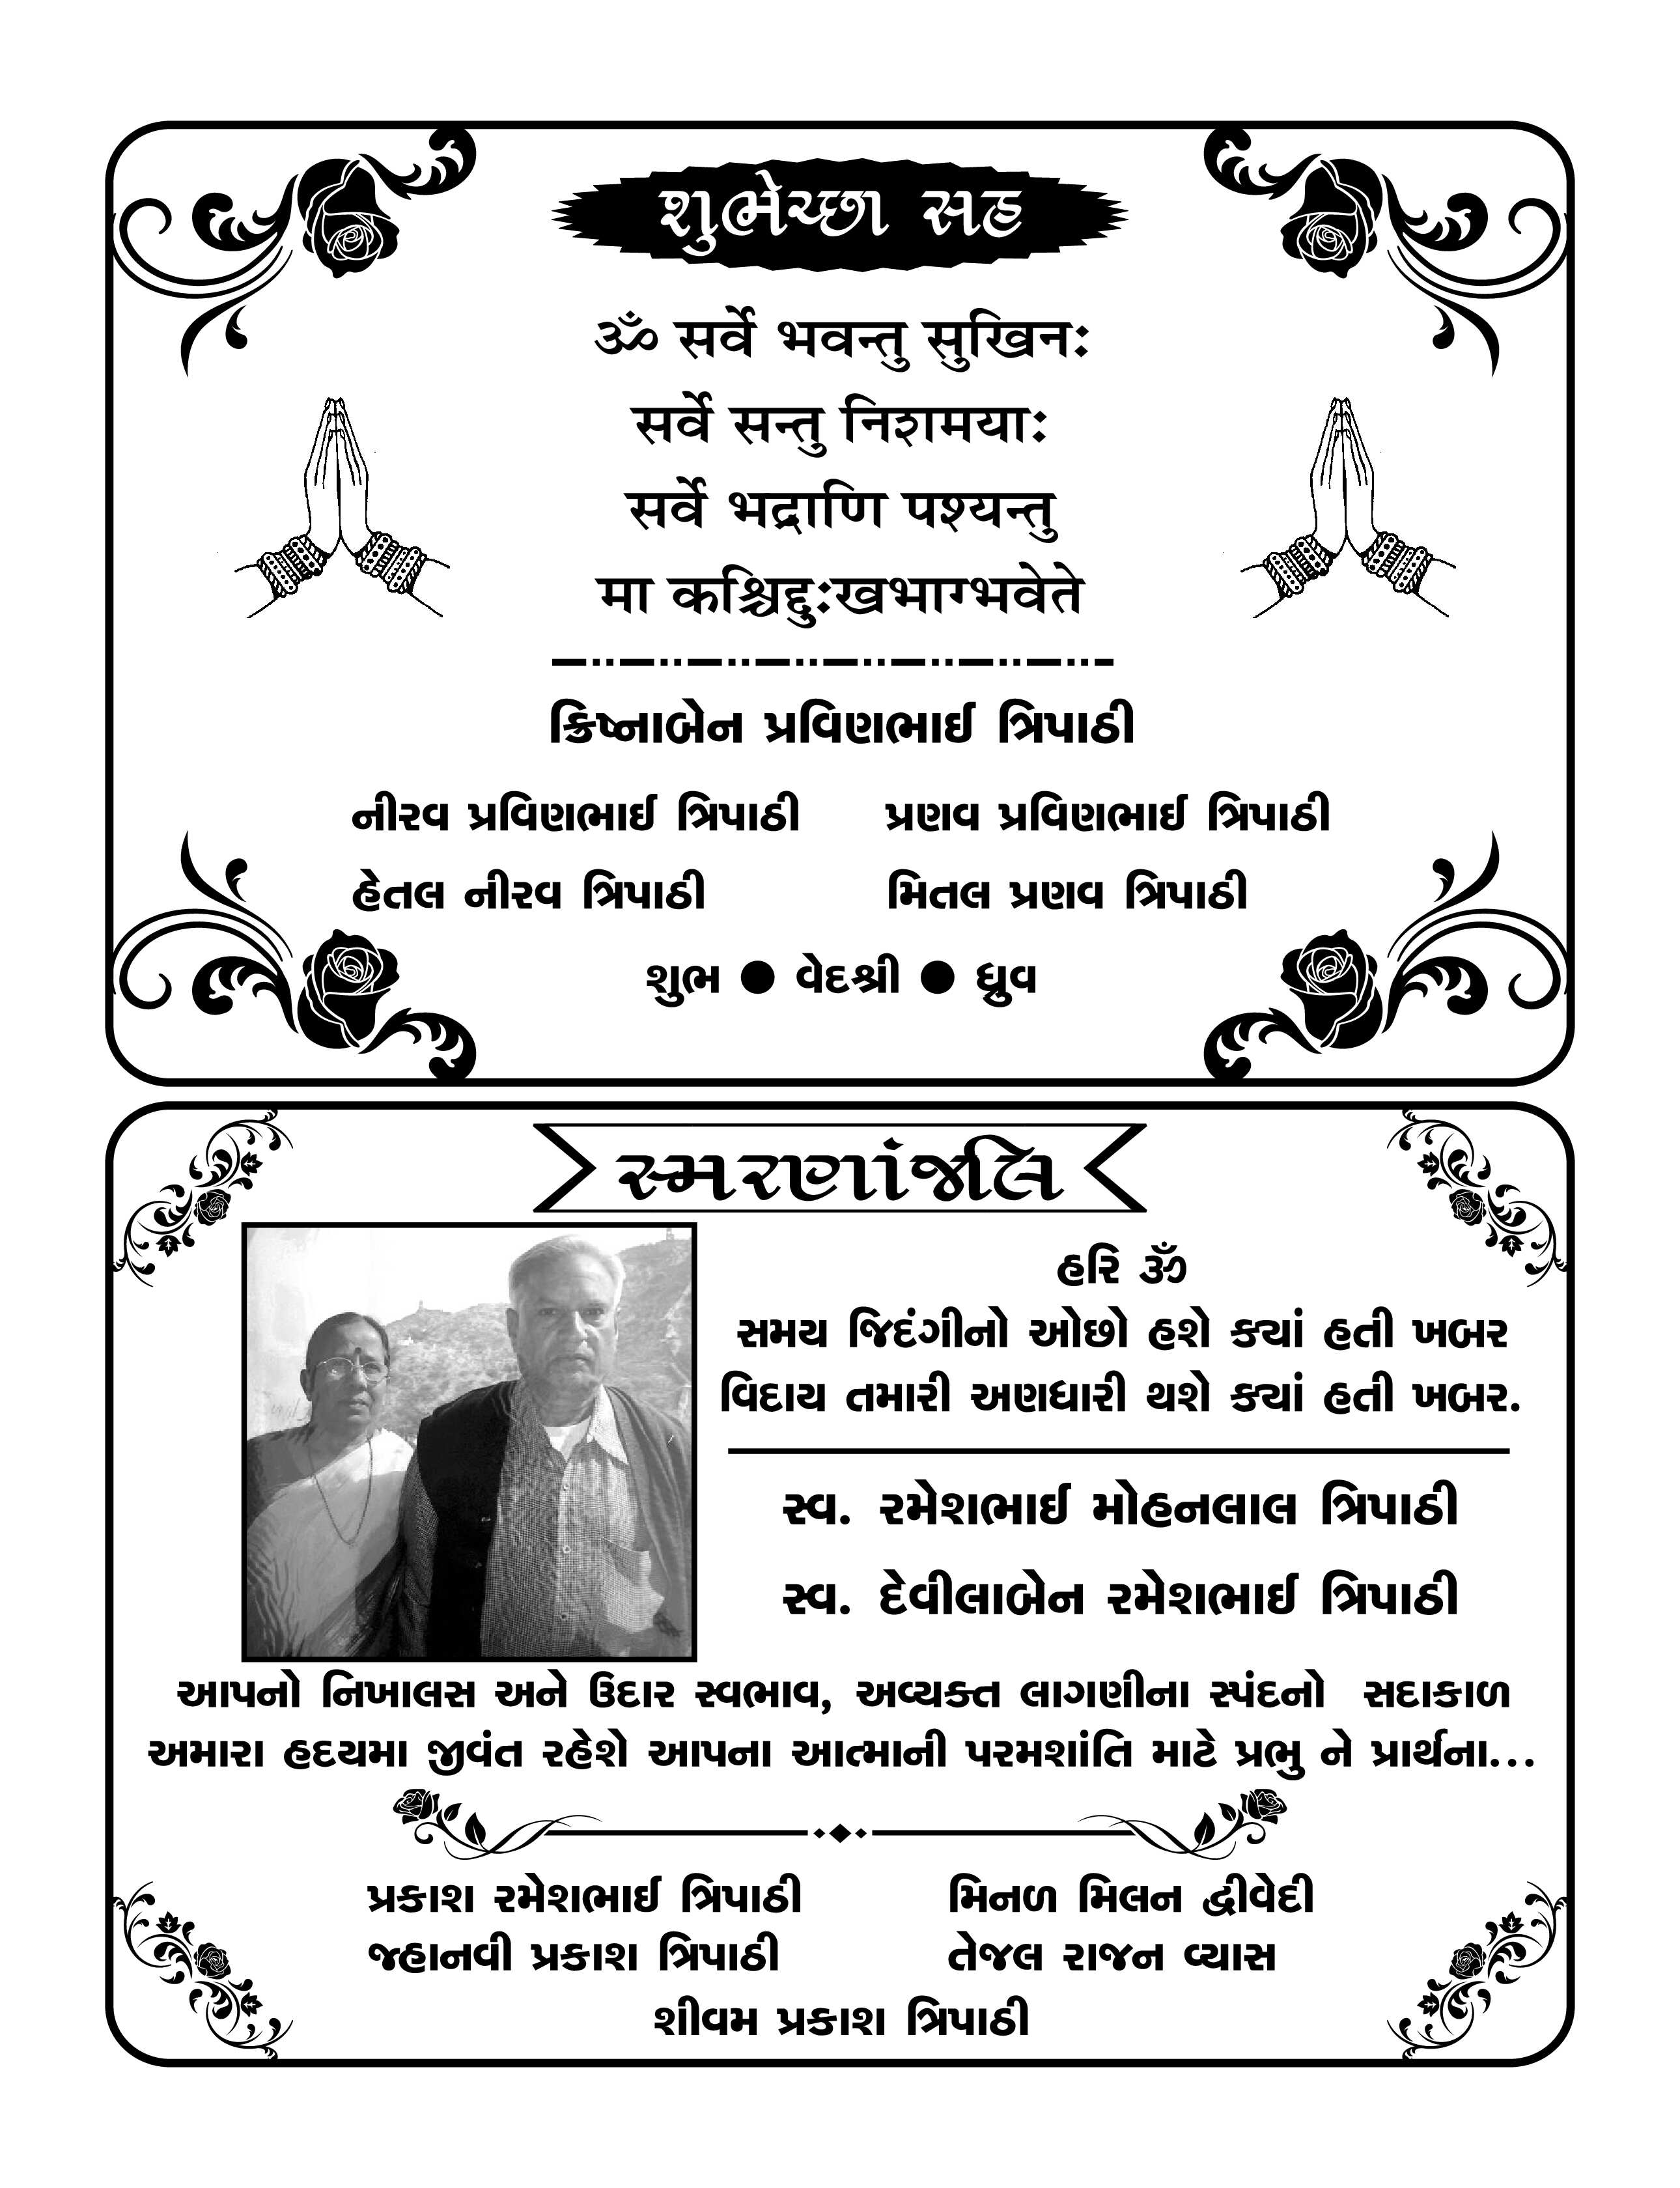 શુભેચ્છા સહ
ॐ सर्वे भवन्तु सुखिनः
सर्वे सन्तु निशमयाः
सर्वे भद्राणि पश्यन्तु
मा कश्चिद्दुःखभाग्भवेते
ક્રિષ્નાબેન પ્રવિણભાઈ ત્રિપાઠી
નીરવ પ્રવિણભાઈ ત્રિપાઠી પ્રણવ પ્રવિણભાઈ ત્રિપાઠી
હેતલ નીરવ ત્રિપાઠી મિતલ પ્રણવ ત્રિપાઠી
શુભ ● વેદશ્રી ● ધ્રુવ
સ્મરણાંજલિ
હરિ ૐ
સમય જિદંગીનો ઓછો હશે ક્યાં હતી ખબર
વિદાય તમારી અણધારી થશે ક્યાં હતી ખબર.
સ્વ. રમેશભાઈ મોહનલાલ ત્રિપાઠી
સ્વ. દેવીલાબેન રમેશભાઈ ત્રિપાઠી
આપનો નિખાલસ અને ઉદાર સ્વભાવ, અવ્યક્ત લાગણીના સ્પંદનો સદાકાળ
અમારા હદયમા જીવંત રહેશે આપના આત્માની પરમશાંતિ માટે પ્રભુ ને પ્રાર્થના...
પ્રકાશ રમેશભાઈ ત્રિપાઠી મિનળ મિલન દ્વીવેદી
જ્હાનવી પ્રકાશ ત્રિપાઠી તેજલ રાજન વ્યાસ
શીવમ પ્રકાશ ત્રિપાઠી